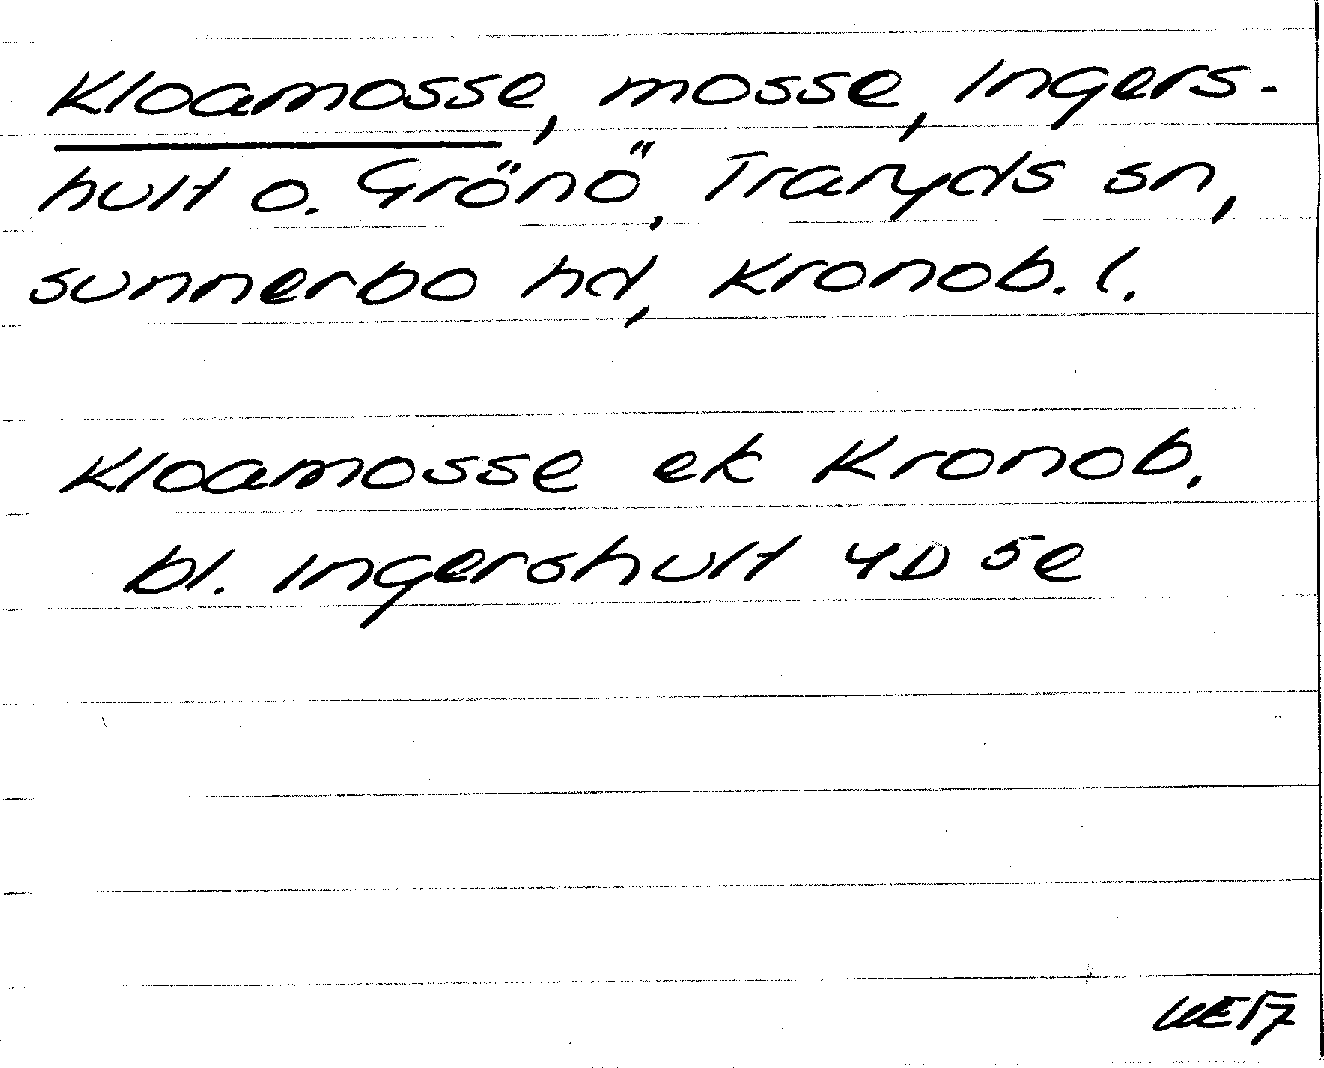 Kloamosse, mosse, Ingers-
hult o. Grönö, Traryds sn,
Sunnerbo hd, Kronob. l.
Kloamosse ek Kronob.
bl. Ingershult 4D 5e